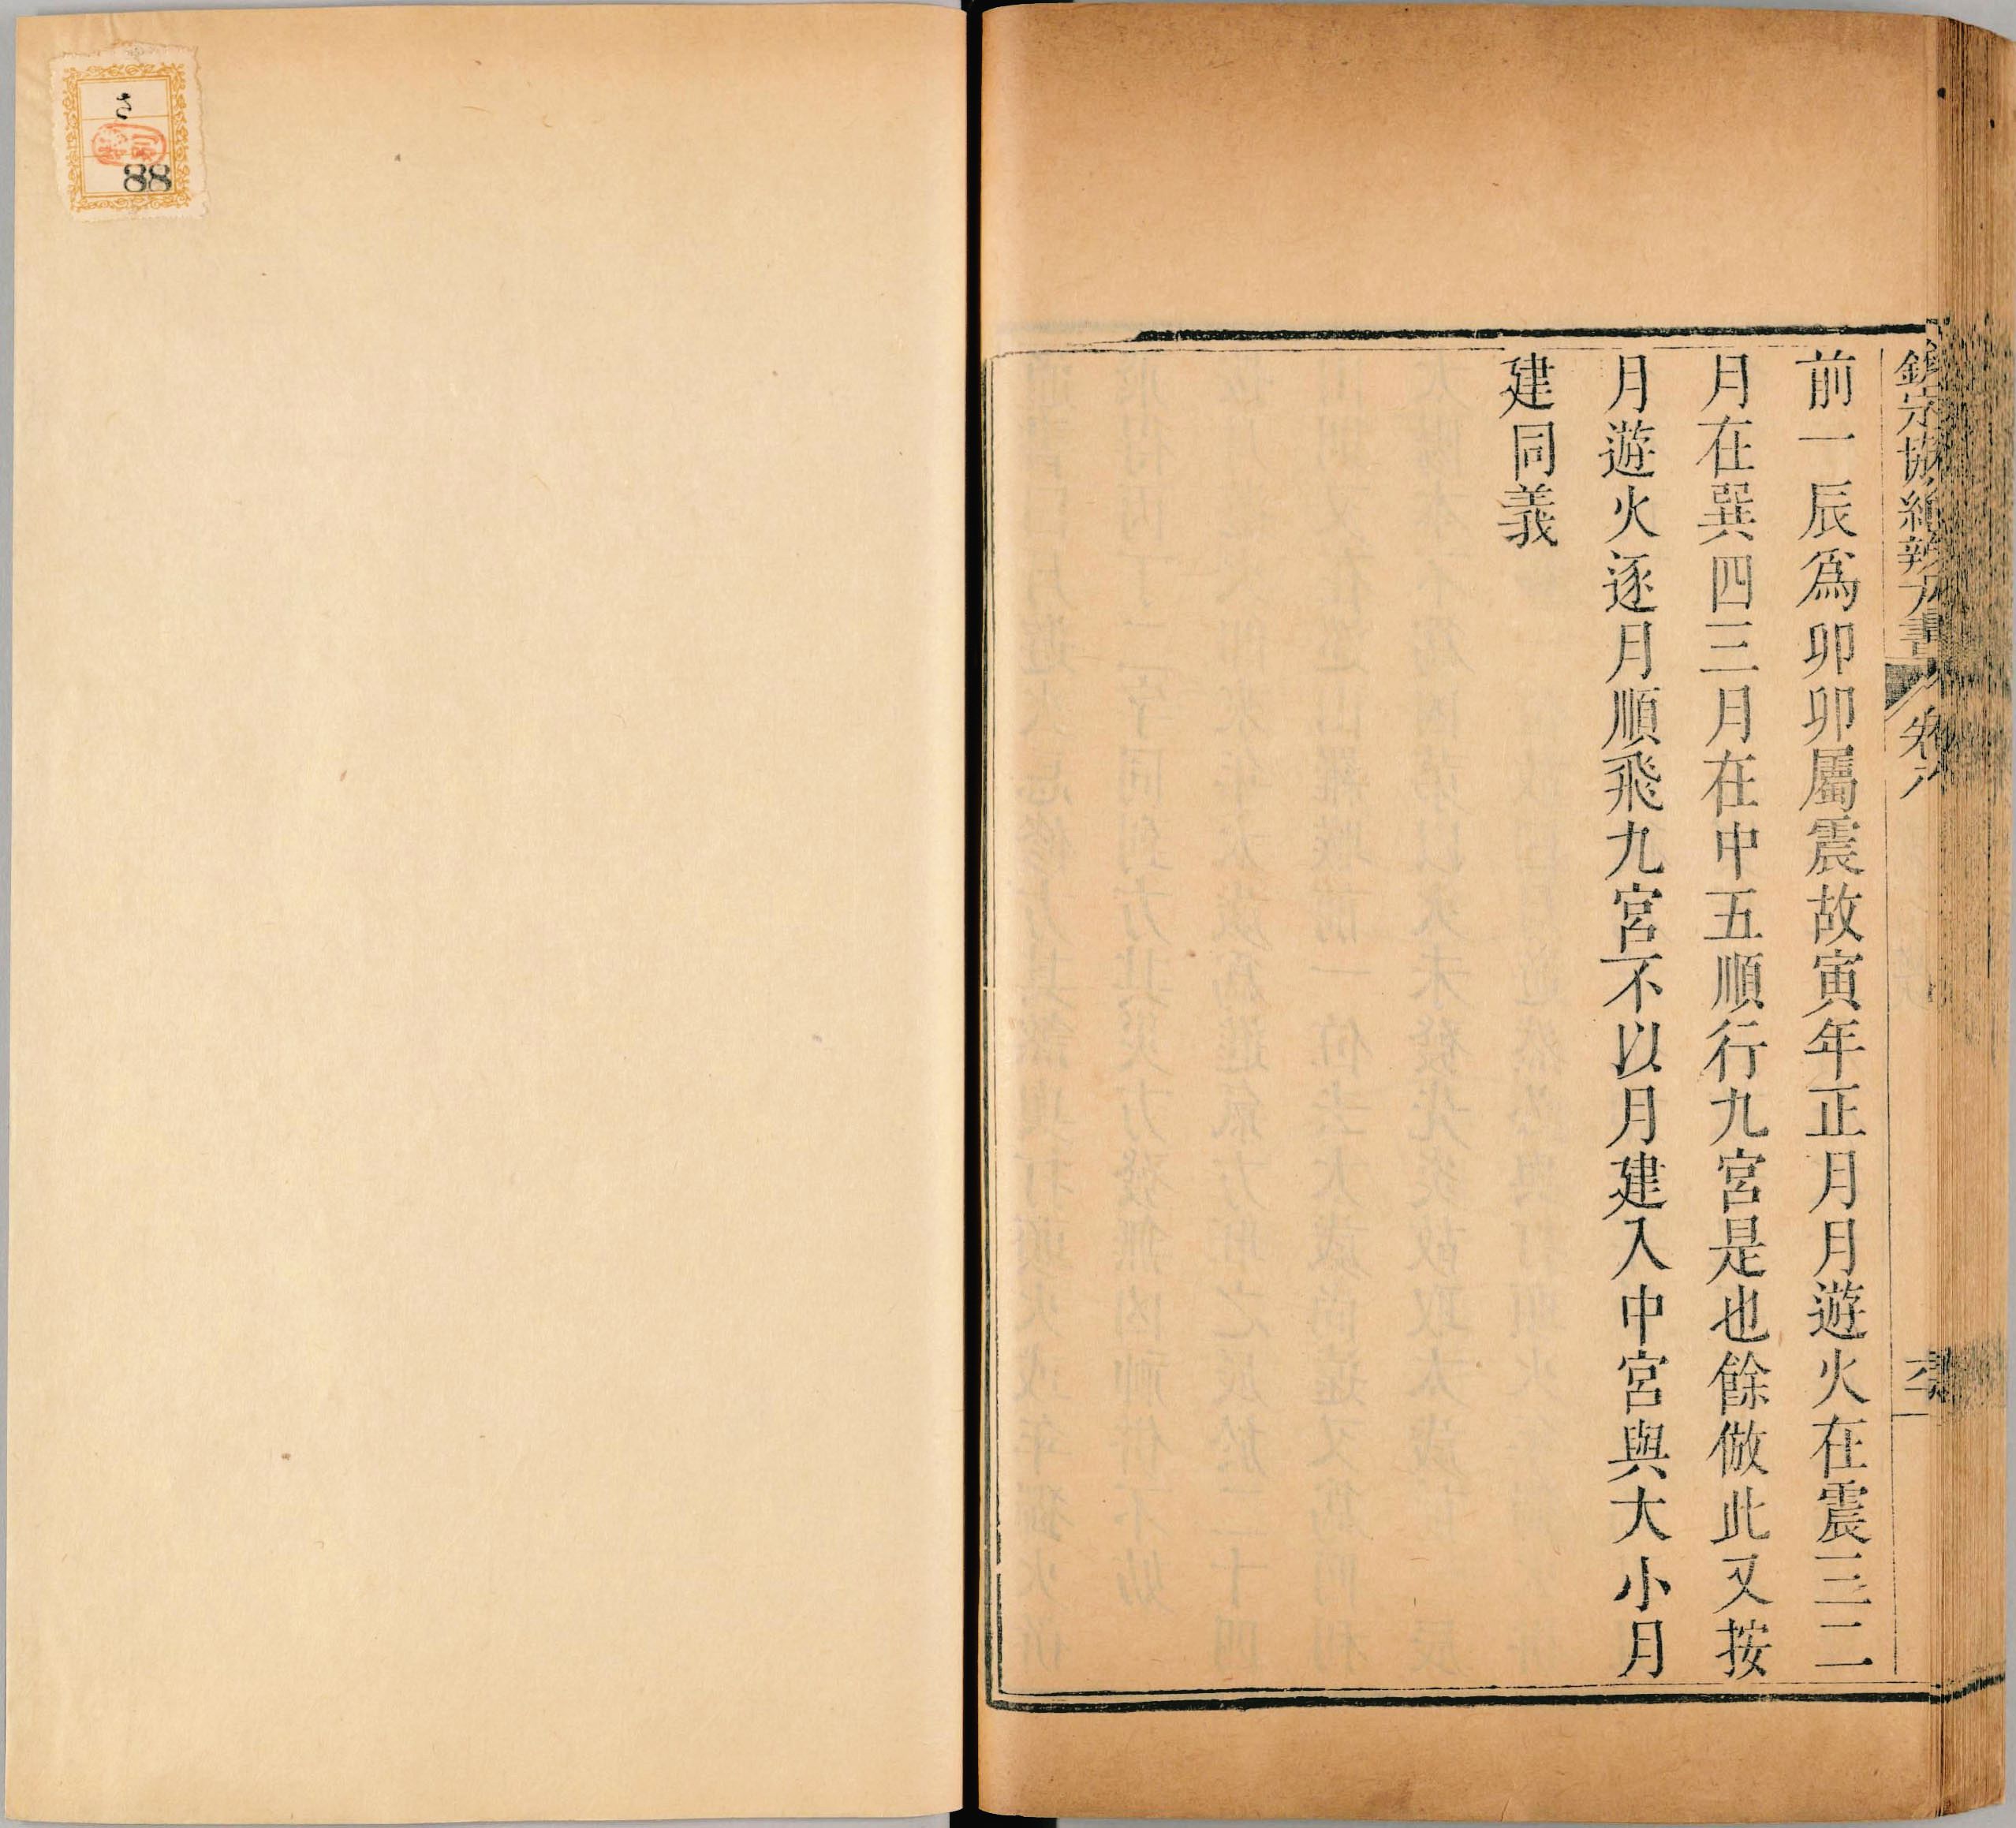 前一辰為卯卯屬震故寅年正月月遊火在震三二
月在巽四三月在中五順行九宮是也餘倣此又按
月遊火逐月順飛九宮不以月建入中宮與大小月
建同義
さ
88